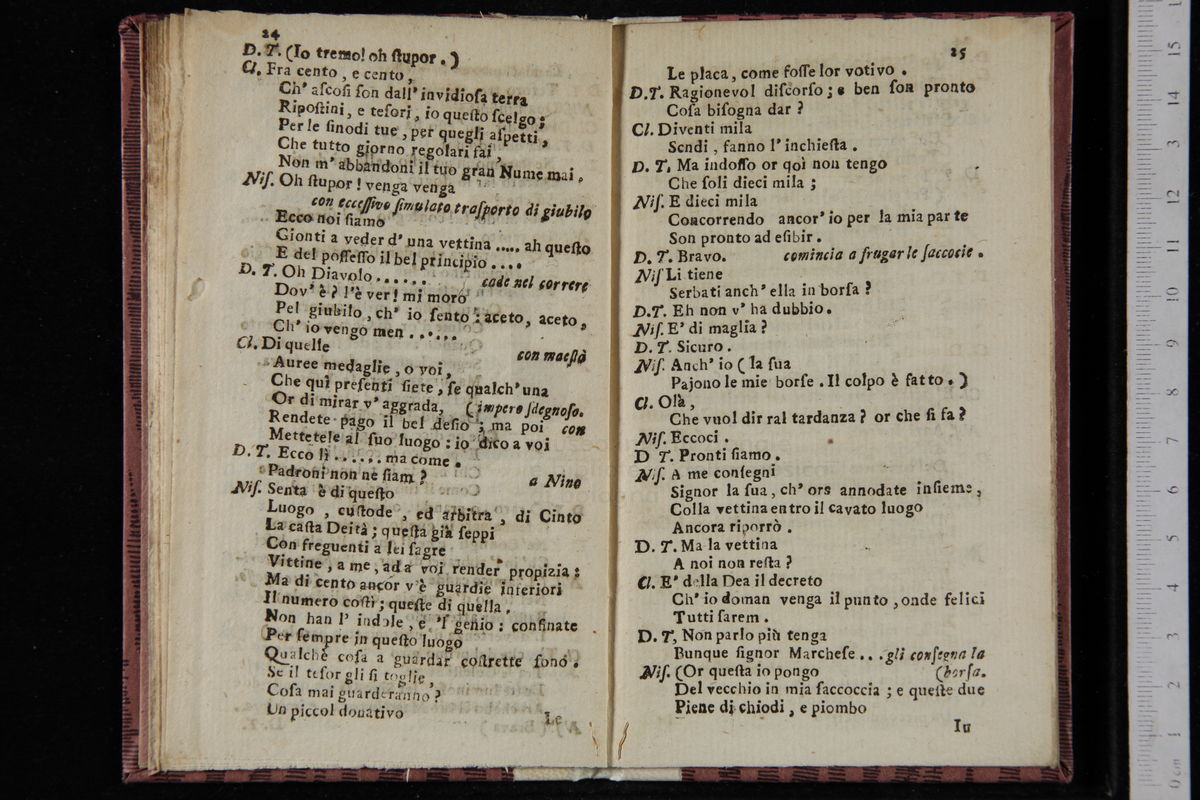 24
D. T. (Io tremo! oh ſtupor. )
Cl. Fra cento, e cento,
Ch' aſcoſi ſon dall' invidioſa terra
Ripoſtini, e teſori, io queſto ſcelgo;
Per le ſinodi tue, per quegli aſpetti,
Che tutto giorno regolari fai,
Non m' abbandoni il tuo gran Nume mai.
Niſ. Oh ſtupor! venga venga
con ecceſſivo ſimulato traſporto di giubilo
Ecco noi ſiamo
Gionti a veder d' una vettina ..... ah queſto
E del poſſeſſo il bel principio ....
D. T. Oh Diavolo ...... cade nel correre
Dov' è? l'è ver! mi moro
Pel giubilo, ch' io ſento: aceto, aceto,
Ch' io vengo men ......
Cl. Di quelle con maeſtà
Auree medaglie, o voi,
Che quì preſenti ſiete, ſe qualch' una
Or di mirar v' aggrada, (impero ſdegnoſo.
Rendete pago il bel deſio; ma poi con
Mettetele al ſuo luogo: io dico a voi
D. T. Ecco lì ...... ma come.
Padroni non ne ſiam? a Nino
Niſ. Senta è di queſto
Luogo, cuſtode, ed arbitra, di Cinto
La caſta Deità; queſta già ſeppi
Con freguenti a lei ſagre
Vittine, a me, ad a voi render propizia:
Ma di cento ancor v'è guardie inferiori
Il numero coſtì; queſte di quella,
Non han l' indole, e 'l genio: confinate
Per ſempre in queſto luogo
Qualche coſa a guardar coſtrette ſono.
Se il teſor gli ſi toglie,
Coſa mai guarderanno?
Un piccol donativo
Le
25
Le placa, come foſſe lor votivo.
D.T. Ragionevol diſcorſo; e ben ſon pronto
Coſa biſogna dar?
Cl. Diventi mila
Scndi, fanno l' inchieſta.
D. T. Ma indoſſo or qoì non tengo
Che ſoli dieci mila;
Niſ. E dieci mila
Concorrendo ancor' io per la mia par te
Son pronto ad eſibir.
D. T. Bravo. comincia a frugar le ſaccocie.
Niſ Li tiene
Serbati anch' ella in borſa?
D.T. Eh non v' ha dubbio.
Niſ. E' di maglia?
D. T. Sicuro.
Niſ. Anch' io ( la ſua
Pajono le mie borſe. Il colpo è fatto. )
Cl. Olà,
Che vuol dir ral tardanza? or che ſi fa?
Niſ. Eccoci.
D T. Pronti ſiamo.
Niſ. A me conſegni
Signor la ſua, ch' ors annodate inſieme,
Colla vettina entro il cavato luogo
Ancora riporrò.
D. T. Ma la vettina
A noi non reſta?
Cl. E' della Dea il decreto
Ch' io doman venga il punto, onde felici
Tutti ſarem.
D. T, Non parlo più tenga
Bunque ſignor Marcheſe ... gli conſegna la
Niſ. (Or queſta io pongo (borſa.
Del vecchio in mia ſaccoccia; e queſte due
Piene di chiodi, e piombo
Iu